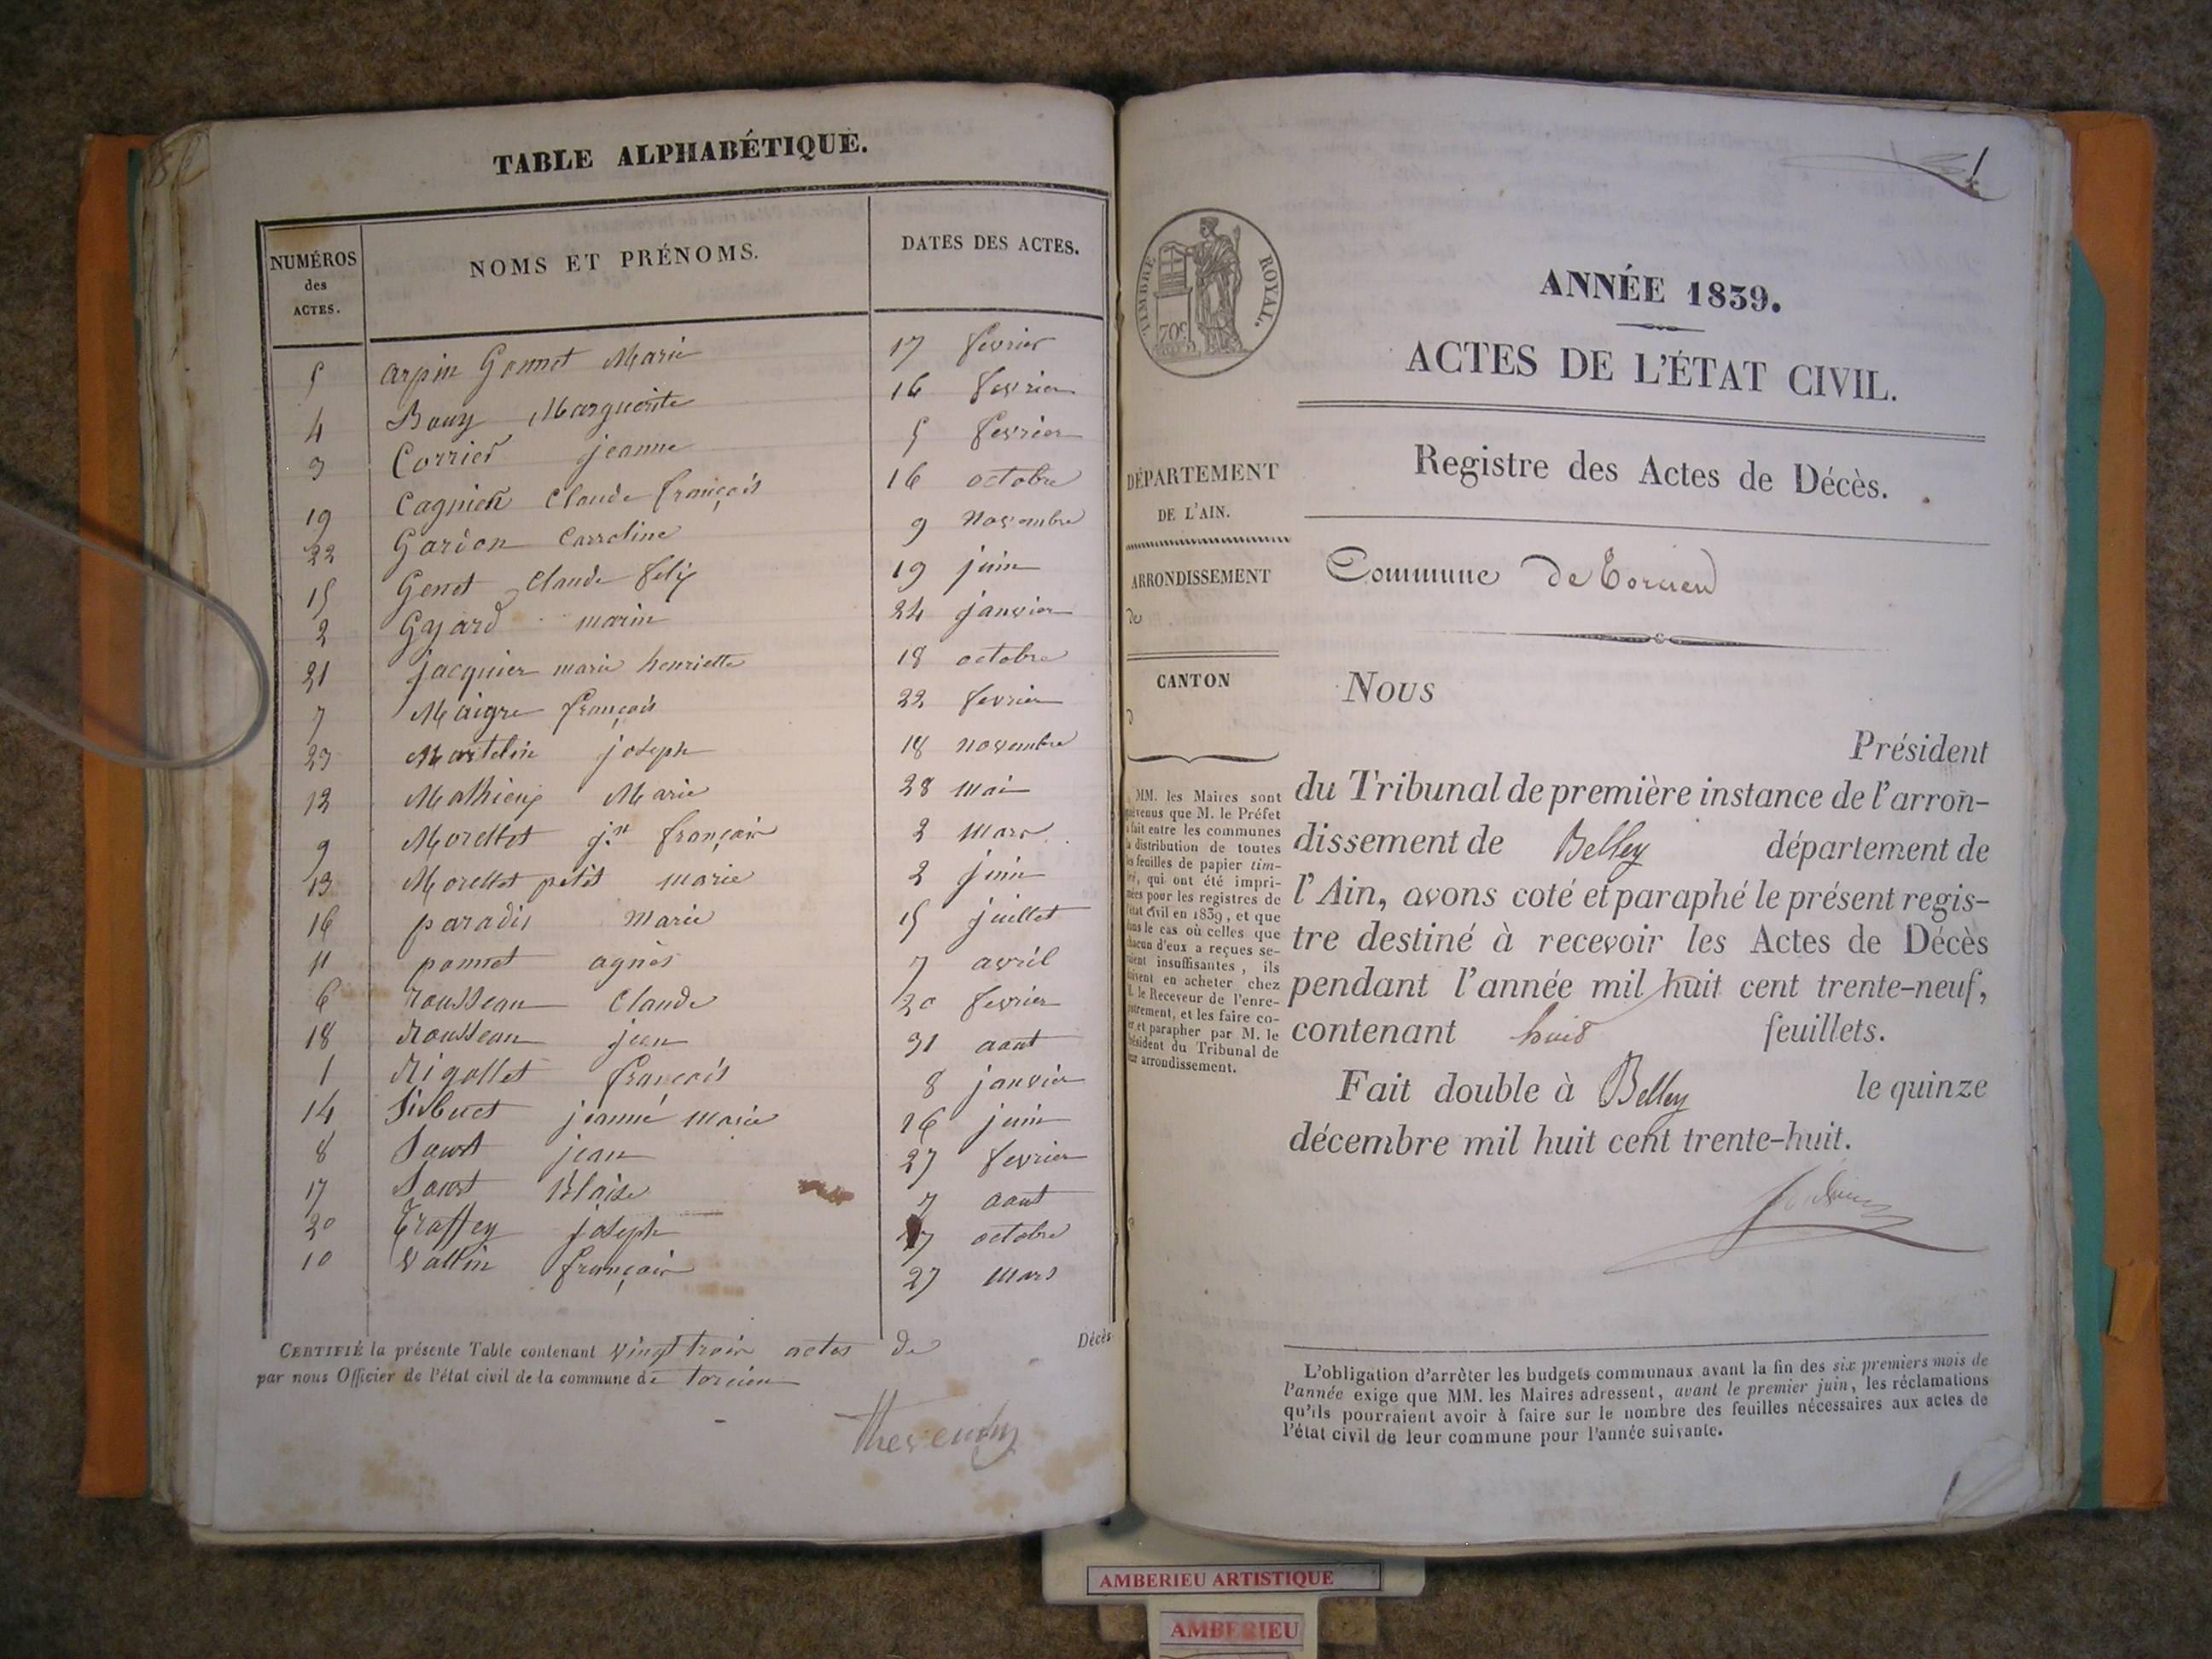 TABLE ALPHABÉTIQUE.
NUMÉROS des ACTES. NOMS ET PRÉNOMS. DATES DES ACTES.
5 arpin Gonnet Marie 17 fevrier
4 Bouy Marguerite 16 fevrier
3 Corrier jeanne 5 fevrier
19 Cagnien Claude françois 16 octobre
22 Garion Carroline 9 Novembre
15 Genet Claude felix 19 juin
2 Gayard marin 24 janvier
21 jacquier marie henriette 18 octobre
7 Maigre françois 22 fevrier
23 Martelin joseph 18 novembre
12 Mathieux Marie 28 Mai
9 Morellet jn françois 2 Mars
13 Morellet petit marie 2 juin
16 paradis Marie 15 juillet
11 ponnet agnès 7 avril
6 rousseau Claude 20 fevrier
18 Rousseau jean 31 aout
1 Rigollet françois 8 janvier
14 jeanne marie 26 juin
8 jean 27 fevrier
17 Blaise 7 aout
20 Traffey joseph 17 octobre
10 Vallin françois 27 Mars
CERTIFIÉ la présente Table contenant vingt trois actes de Décès
par nous Officier de l'état civil de la commune de torcieu
TIMBRE ROYAL.
70c
ANNÉE 1839.
ACTES DE L'ÉTAT CIVIL.
Registre des Actes de Décès.
DÉPARTEMENT
DE L'AIN.
ARRONDISSEMENT
de
CANTON
d
Commune de Torcieu
MM. les Maires sont
prévenus que M. le Préfet
a fait entre les communes
la distribution de toutes
les feuilles de papier tim-
bré, qui ont été impri-
mées pour les registres de
l'état civil en 1839, et que
dans le cas où celles que
chacun d'eux a reçues se-
raient insuffisantes, ils
doivent en acheter chez
M. le Receveur de l'enre-
gistrement, et les faire co-
ter et parapher par M. le
Président du Tribunal de
leur arrondissement.
Nous
Président
du Tribunal de première instance de l'arron-
dissement de Belley département de
l'Ain, avons coté et paraphé le présent regis-
tre destiné à recevoir les Actes de Décès
pendant l'année mil huit cent trente-neuf,
contenant huit feuillets.
Fait double à Belley le quinze
décembre mil huit cent trente-huit.
L'obligation d'arrêter les budgets communaux avant la fin des six premiers mois de
l'année exige que MM. les Maires adressent, avant le premier juin, les réclamations
qu'ils pourraient avoir à faire sur le nombre des feuilles nécessaires aux actes de
l'état civil de leur commune pour l'année suivante.
AMBERIEU ARTISTIQUE
AMBERIEU